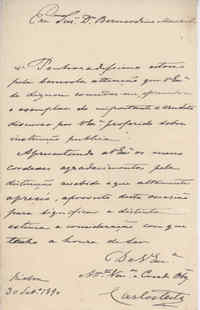 Ex.mo Snr. Dr. Bernardino Machado
Penhoradissimo estou
pela benevola attenção que V. Ex.ª
se dignou conceder-me, offerecendo
o exemplar do importante e erudito
discurso por V. Ex.ª proferido sobre
instrucção publica.
Apresentando a V. Ex.ª os meus
cordeaes agradecimentos pela
distincção recebida e que altamente
aprecio, aproveito esta occasião
para significar a distincta
estima e consideração com que
tenho a honra de ser
De V. Ex.ª
Att.º Ven.or e Creado Obg.
Lisboa
30 Set.º 1890
Carlos Testa